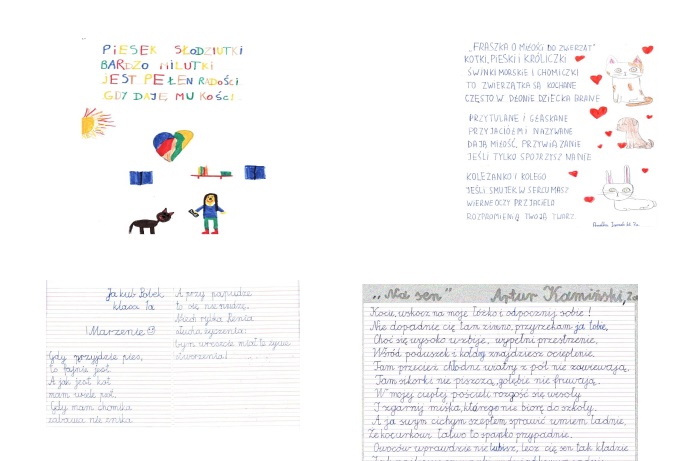 PIESEK SŁODZIUTKI
BARDZO MILUTKI
JEST PEŁEN RADOŚCI
GDY DAJĘ MU KOŚCI
"FRASZKA O MIŁOŚCI DO ZWIERZĄT"
KOTKI, PIESKI I KRÓLICZKI
ŚWINKI MORSKIE I CHOMICZKI
TO ZWIERZĄTKA SĄ KOCHANE
CZĘSTO W DŁONIE DZIECKA BRANE
PRZYTULANE I GŁASKANE
PRZYJACIÓŁMI NAZYWANE
DAJĄ MIŁOŚĆ, PRZYWIĄZANIE
JEŚLI TYLKO SPOJRZYSZ NA NIE
KOLEŻANKO I KOLEGO
JEŚLI SMUTEK W SERCU MASZ
WIERNE OCZY PRZYJACIELA
ROZPROMIENIĄ TWOJĄ TWARZ
Jakub Bobek
klasa 1a
Marzenie
Gdy przyjdzie pies,
to fajnie jest
A jak jest kot
mam wiele psot.
Gdy mam chomika
zabawa nie znika
A przy papudze
to się nie nudzę.
Niech rybka Xenia
słucha życzenia:
bym wreszcie miał te żywe
stworzenia!
"Na sen" Artur Kamiński,
Kocie, wskocz na moje łóżko i odpocznij sobie!
Nie dopadnie cię tam zimno, przyrzekam ja tobie,
Choć się wysoko wzbije, wypełni przestrzenie,
Wśród poduszek i kołdry znajdziesz ocieplenie.
Tam przecież chłodne wiatry z pól nie zawiewają,
Tam sikorki nie piszczą, gołębie nie fruwają.
W mojej ciepłej pościeli rozgość się wesoły
I zgarnij miśka, którego nie biorę do szkoły.
A ja swym cichym szeptem sprawić umiem ładnie,
Że kocurkowi łatwo to spanko przypadnie.
Owoców wprawdzie nie lubisz, lecz cię sen tak kładzie